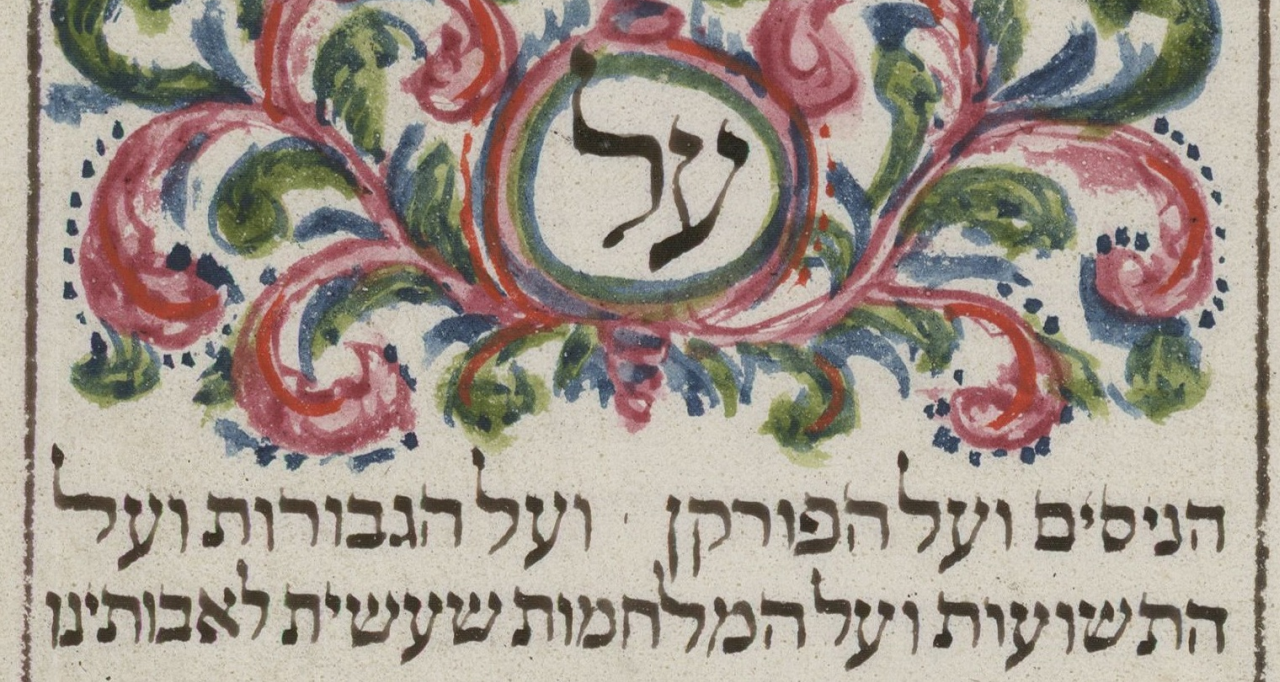 על
הניסים ועל הפורקן ועל הגבורות ועל
התשועות ועל המלחמות שעשית לאבותינו